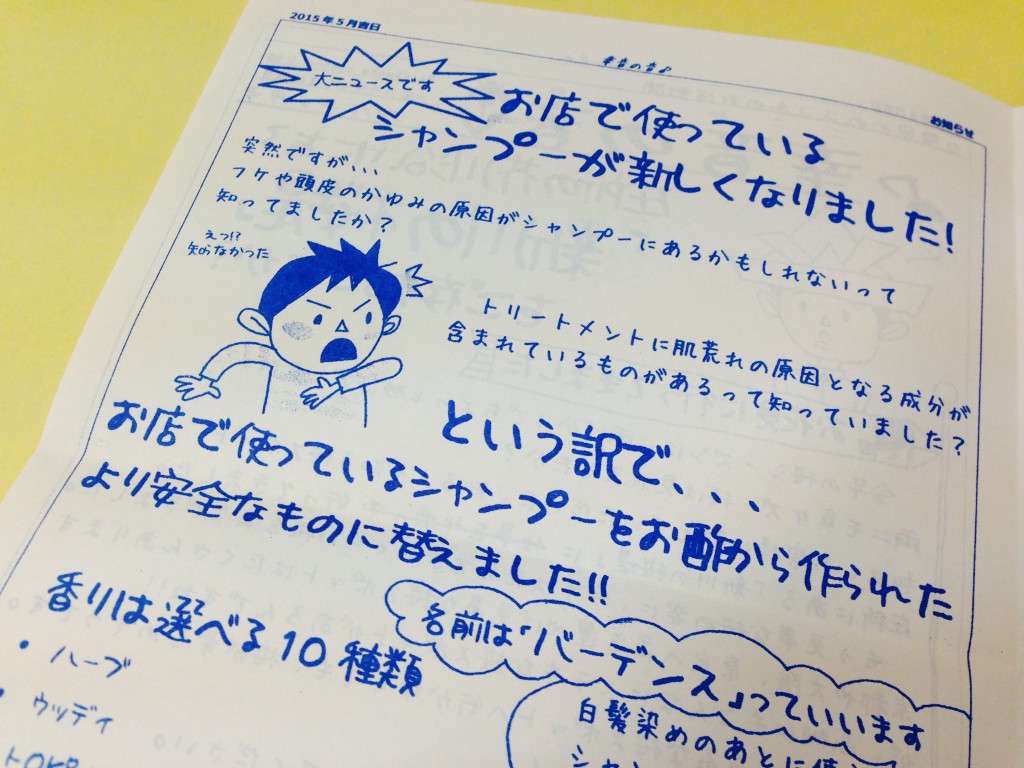 2015年5月吉日
幸音の音♪
お知らせ
大ニュースです
お店で使っている
シャンプーが新しくなりました!
突然ですが、、、
フケや頭皮のかゆみの原因がシャンプーにあるかもしれないって
知ってましたか?
えっ!?
知らなかった
トリートメントに肌荒れの原因となる成分が
含まれているものがあるって知っていました?
という訳で、、、
お店で使っているシャンプーをお酢から作られた
より安全なものに替えました!!
香りは選べる10種類
・ハーブ
・ウッディ
名前は「バーデンス」っていいます
白髪染めのあとに使